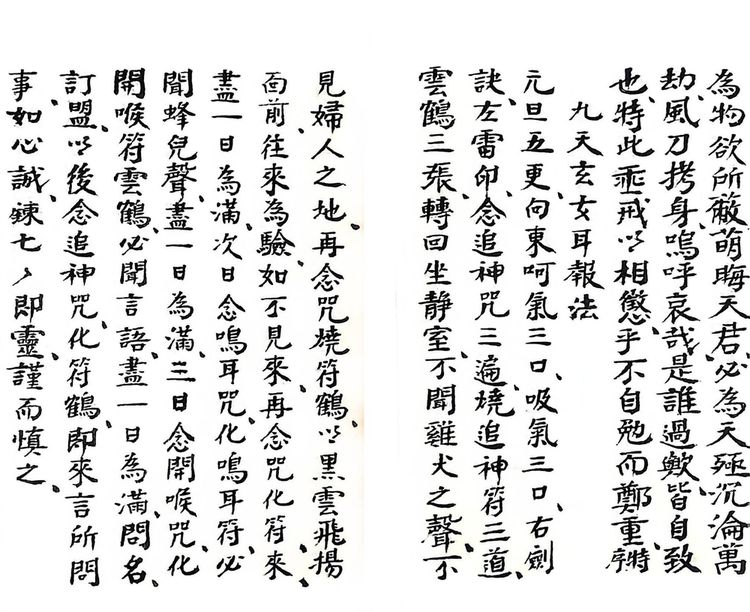 為物欲所蔽萌晦天君必為天殛沉淪萬
劫風刀拷身嗚呼哀哉是誰過歟皆自致
也特此垂戒以相懲乎不自勉而鄭重特序
九天玄女耳報法
元旦五更向東呵氣三口吸氣三口右劍
訣左雷印念追神咒三遍燒追神符三道
雲鶴三張轉回坐静室不聞雞犬之聲不
見婦人之地再念咒燒符鶴以黑雲飛揚
面前往來為驗如不見來再念咒化符來
盡一日為滿次日念鳴耳咒化鳴耳符必
聞蜂兒聲盡一日為滿三日念開喉咒化
開喉符雲鶴必聞言語盡一日為滿問名
訂盟以後念追神咒化符鶴即來言所問
事如心誠鍊七々即靈謹而慎之